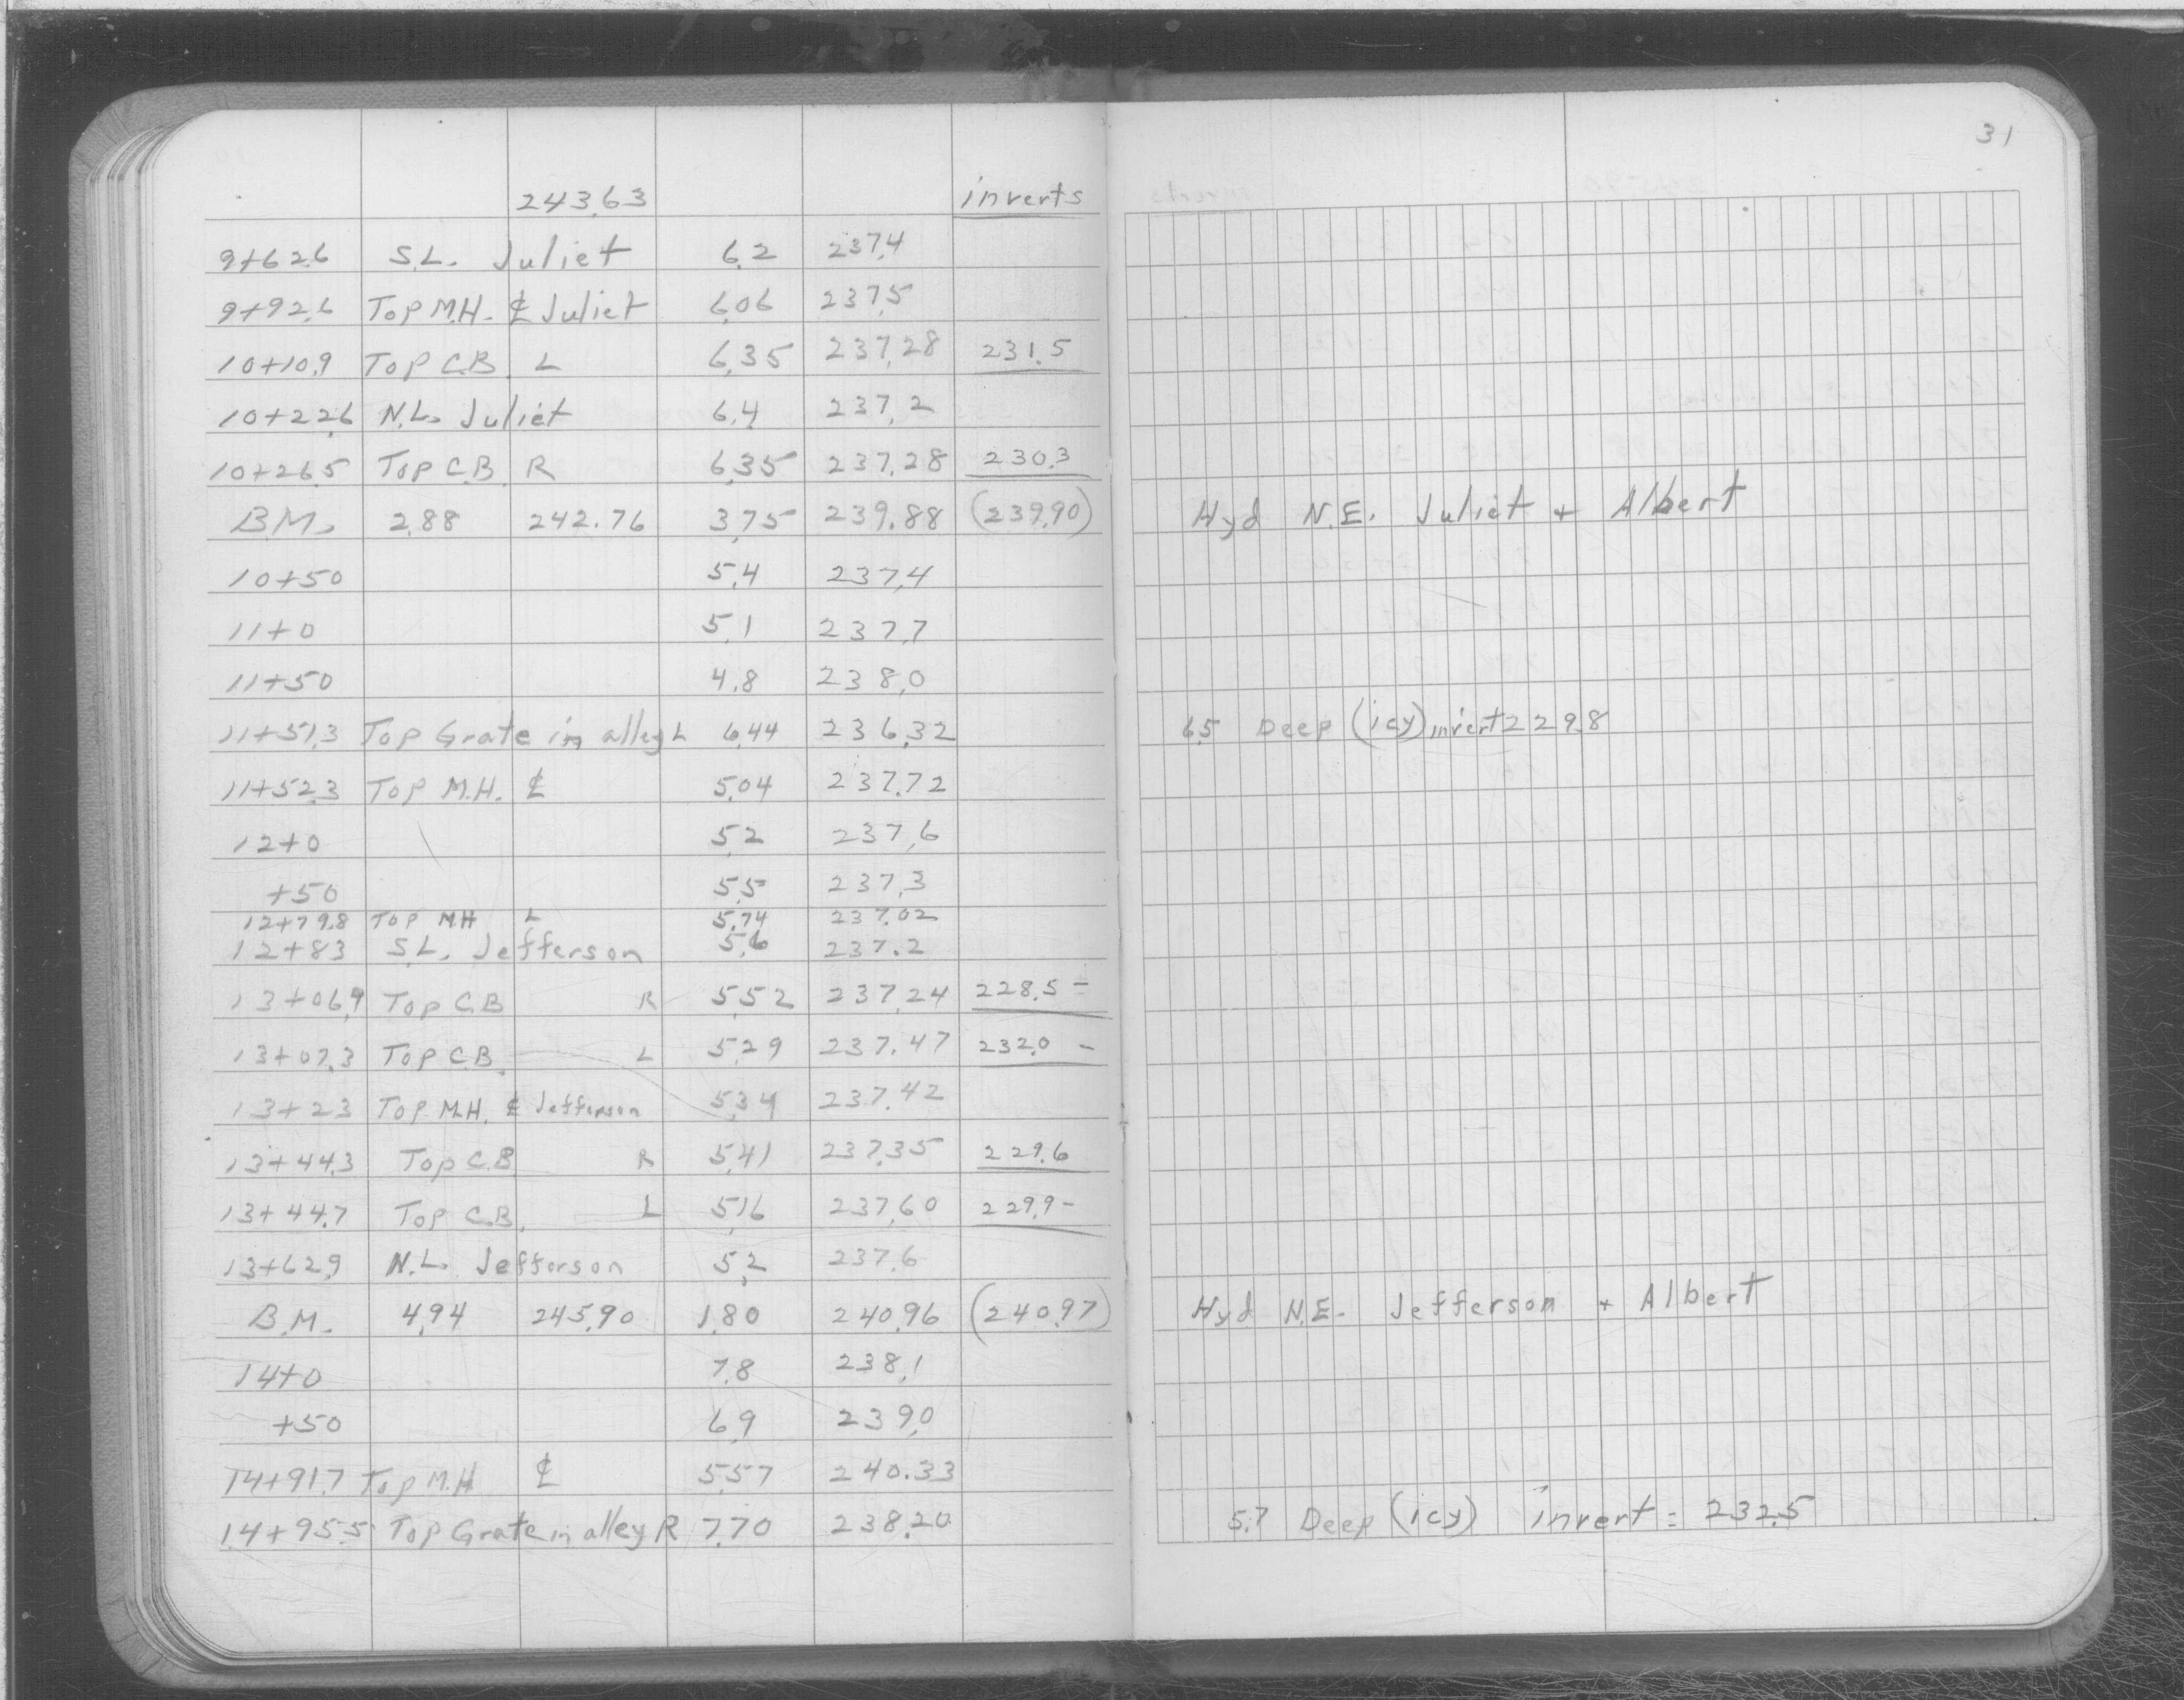 31
243.63 inverts
9+62.6 S.L. Juliet 6.2 237.4
9+92.6 Top M.H. ℄ Juliet 6.06 237.5
10+10.9 Top C.B. L 6.35 237.28 231.5
10+22.6 N.L. Juliet 6.4 237.2
10+26.5 Top C.B. R 6.35 237.28 230.3
B.M. 2.88 242.76 3.75 239.88 (239.90) Hyd N.E. Juliet + Albert
10+50 5.4 237.4
11+0 5.1 237.7
11+50 4.8 238.0
11+51.3 Top Grate in alley L 6.44 236.32 6.5 Deep (icy) invert 229.8
11+52.3 Top M.H. ℄ 5.04 237.72
12+0 5.2 237.6
+50 5.5 237.3
12+79.8 Top MH L 5.74 237.02
12+83 S.L. Jefferson 5.6 237.2
13+06.9 Top C.B R 5.52 237.24 228.5 -
13+07.3 Top C.B. L 5.29 237.47 232.0 -
13+23 Top M.H. ℄ Jefferson 5.34 237.42
13+44.3 Top C.B R 5.41 237.35 229.6
13+44.7 Top C.B. L 5.16 237.60 229.9 -
13+62.9 N.L. Jefferson 5.2 237.6
B.M. 4.94 245.90 1.80 240.96 (240.97) Hyd. N.E. Jefferson + Albert
14+0 7.8 238.1
+50 6.9 239.0
14+91.7 Top M.H ℄ 5.57 240.33
14+95.5 Top Grate in alley R 7.70 238.20 5.7 Deep (icy) invert = 232.5